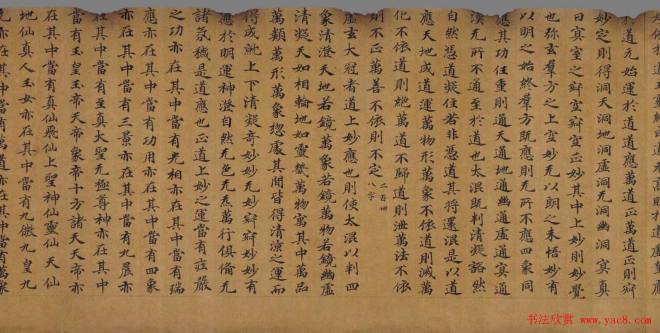 道元始運於道道應萬道正萬道正則辯
妙定則得洞天洞地洞虛洞无洞幽洞冥真
曰室之辯辯正妙其中上妙則妙覺
也弥玄羣方之上妙无以朗之未悟妙有
以明之妙終羣方既无所不應四象同
應其功任重則通天地通幽通虛通通
漠无所不通至於道也太混既判清凝豁然
自然憑道凝任若非憑道其将還混是以道
應天地成道運萬物形萬象不依道則滅萬
化不依道則絶萬道不歸道則泄萬法不依
則不正萬善不依則不定 二百卌八字
虛玄大冠者道上妙應也則使太混以判四
象清澄天地若鏡萬象若鏡萬物若鏡幽虛
清凝天如相輪地如靈萬物寓其中萬品
萬類萬形萬象揔處其間皆得清凉之運而
得成就上下清凝奇妙妙无妙辯辯妙妙有
應於明運神澄自然无色无炁萬行俱備无
諸氛穢是道應也正道上妙之運當有莊嚴
之功亦在其中當有光相亦在其中當有瑞
應亦在其中當有功用亦在其中當有四象
亦在其中當有三景亦在其中當有九宸亦
在其中當有至真大聖无極尊神亦在其中
當有玉皇玉帝天帝象帝十方諸天天帝亦
在其中當有真仙飛仙上聖神仙靈仙天仙
地仙真人玉女亦在其中當有九微九皇九
书法欣赏
www.yac8.com